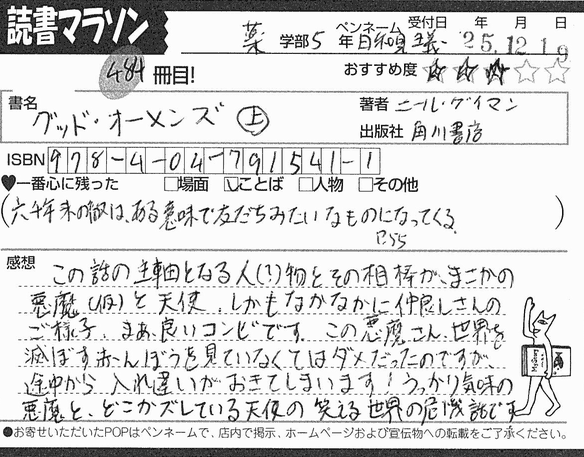 読書マラソン
薬 学部 5 年 ペンネーム 日和見主義 受付日 25 年 12 月 19 日
484 冊目! おすすめ度 ★★★☆☆
書名 グッド・オーメンズ 上 著者 ニール・ゲイマン
出版社 角川書店
ISBN 978-4-04-791541-1
♥一番心に残った □場面 ☑ことば □人物 □その他
(六千年来の敵は、ある意味で友だちみたいなものになってくる。)
P55
感想 この話の主軸となる人(?)物とその相棒が、まさかの
悪魔(仮)と天使。しかもなかなかに仲良しさんの
ご様子、まあ良いコンビです。この悪魔さん、世界を
滅ぼす赤んぼうを見ていなくてはダメだったのですが、
途中から入れ違いがおきてしまいます!うっかり気味の
悪魔と、どこかズレている天使の笑える世界の危機話です
●お寄せいただいたPOPはペンネームで、店内で掲示、ホームページおよび宣伝物への転載をご了承ください。